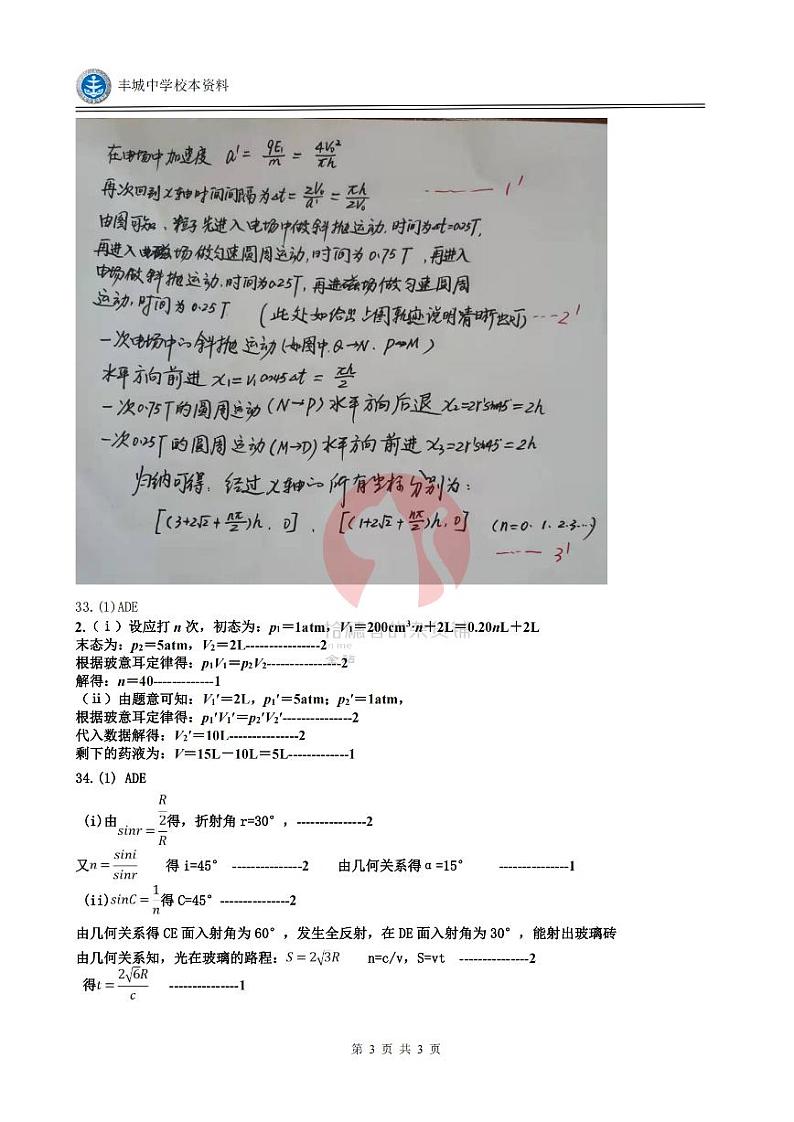 丰城中学校本资料
在电场中加速度 a'= qE₁/m = 4v₀²/πh
再次回到x轴时间间隔为Δt= 2v₀/a' = πh/2v₀ ------- 1'
由图可知、粒子先进入电场中做斜抛运动,时间为Δt=0.25T,
再进入磁场做匀速圆周运动,时间为0.75T,再进入
电场做斜抛运动,时间为0.25T,再进磁场做匀速圆周
运动,时间为0.25T (此处如给出上图轨迹说明清晰也可)----2'
一次电场中的斜抛运动(如图中,Q→N、P→M)
水平方向前进 x₁=v₁cos45Δt = πh/2
一次0.75T的圆周运动(N→P)水平方向后退 x₂=2r'sin45°=2h
一次0.25T的圆周运动(M→D)水平方向前进 x₃=2r'sin45°=2h
归纳可得:经过x轴的所有坐标分别为:
[(3+2√2+nπ/2)h,0]、[(1+2√2+nπ/2)h,0] (n=0、1、2、3…)
------ 3'
33.(1)ADE
2.(ⅰ)设应打 n 次,初态为:p₁=1atm,V₁=200cm³·n+2L=0.20nL+2L
末态为:p₂=5atm,V₂=2L----------------2
根据玻意耳定律得:p₁V₁=p₂V₂----------------2
解得:n=40-------------1
(ⅱ)由题意可知:V₁′=2L,p₁′=5atm;p₂′=1atm,
根据玻意耳定律得:p₁′V₁′=p₂′V₂′---------------2
代入数据解得:V₂′=10L---------------2
剩下的药液为:V=15L-10L=5L-------------1
34.(1) ADE
(i)由sinr=(R/2)/R得,折射角 r=30°,---------------2
又n=sini/sinr 得 i=45° ---------------2 由几何关系得α=15° ---------------1
(ii)sinC=1/n得 C=45°---------------2
由几何关系得 CE 面入射角为 60°,发生全反射,在 DE 面入射角为 30°,能射出玻璃砖
由几何关系知,光在玻璃的路程:S=2√3R n=c/v,S=vt ---------------2
得t=2√6R/c ---------------1
第 3 页 共 3 页